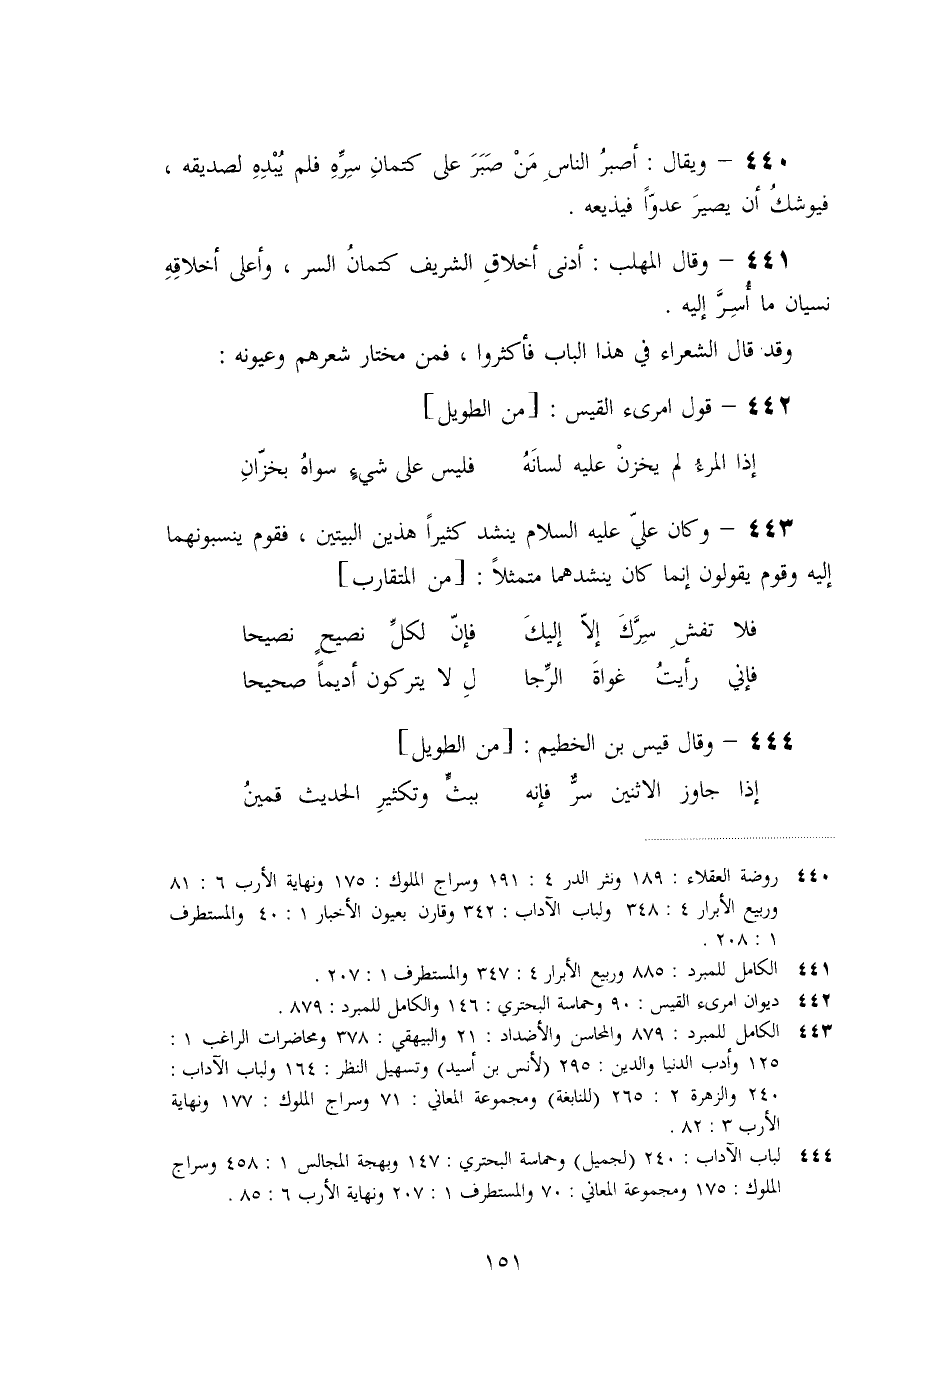 ٤٤٠ – ويقال : أصبرُ الناسِ مَنْ صَبَرَ على كتمانِ سِرِّهِ فلم يُبْدِهِ لصديقه ،
فيوشكُ أن يصيرَ عدوّاً فيذيعه .
٤٤١ – وقال المهلب : أدنى أخلاقِ الشريف كتمانُ السر ، وأعلى أخلاقِهِ
نسيان ما أُسِرَّ إليه .
وقد قال الشعراء في هذا الباب فأكثروا ، فمن مختار شعرهم وعيونه :
٤٤٢ – قول امرىء القيس : [من الطويل]
إذا المرءُ لم يخزنْ عليه لسانَهُ فليس على شيءٍ سواهُ بخزّانِ
٤٤٣ – وكان عليّ عليه السلام ينشد كثيراً هذين البيتين ، فقوم ينسبونهما
إليه وقوم يقولون إنما كان ينشدهما متمثلاً : [من المتقارب]
فلا تفشِ سِرَّكَ إلاّ إليكَ فإنّ لكلِّ نصيحٍ نصيحا
فإني رأيتُ غواةَ الرِّجا لِ لا يتركون أديماً صحيحا
٤٤٤ – وقال قيس بن الخطيم : [من الطويل]
إذا جاوز الاثنين سرٌّ فإنه ببثٍّ وتكثيرِ الحديث قمينُ
٤٤٠ روضة العقلاء : ١٨٩ ونثر الدر ٤ : ١٩١ وسراج الملوك : ١٧٥ ونهاية الأرب ٦ : ٨١
وربيع الأبرار ٤ : ٣٤٨ ولباب الآداب : ٣٤٢ وقارن بعيون الأخبار ١ : ٤٠ والمستطرف
١ : ٢٠٨ .
٤٤١ الكامل للمبرد : ٨٨٥ وربيع الأبرار ٤ : ٣٤٧ والمستطرف ١ : ٢٠٧ .
٤٤٢ ديوان امرىء القيس : ٩٠ وحماسة البحتري : ١٤٦ والكامل للمبرد : ٨٧٩ .
٤٤٣ الكامل للمبرد : ٨٧٩ والمحاسن والأضداد : ٢١ والبيهقي : ٣٧٨ ومحاضرات الراغب ١ :
١٢٥ وأدب الدنيا والدين : ٢٩٥ (لأنس بن أسيد) وتسهيل النظر : ١٦٤ ولباب الآداب :
٢٤٠ والزهرة ٢ : ٢٦٥ (للنابغة) ومجموعة المعاني : ٧١ وسراج الملوك : ١٧٧ ونهاية
الأرب ٣ : ٨٢ .
٤٤٤ لباب الآداب : ٢٤٠ (لجميل) وحماسة البحتري : ١٤٧ وبهجة المجالس ١ : ٤٥٨ وسراج
الملوك : ١٧٥ ومجموعة المعاني : ٧٠ والمستطرف ١ : ٢٠٧ ونهاية الأرب ٦ : ٨٥ .
١٥١